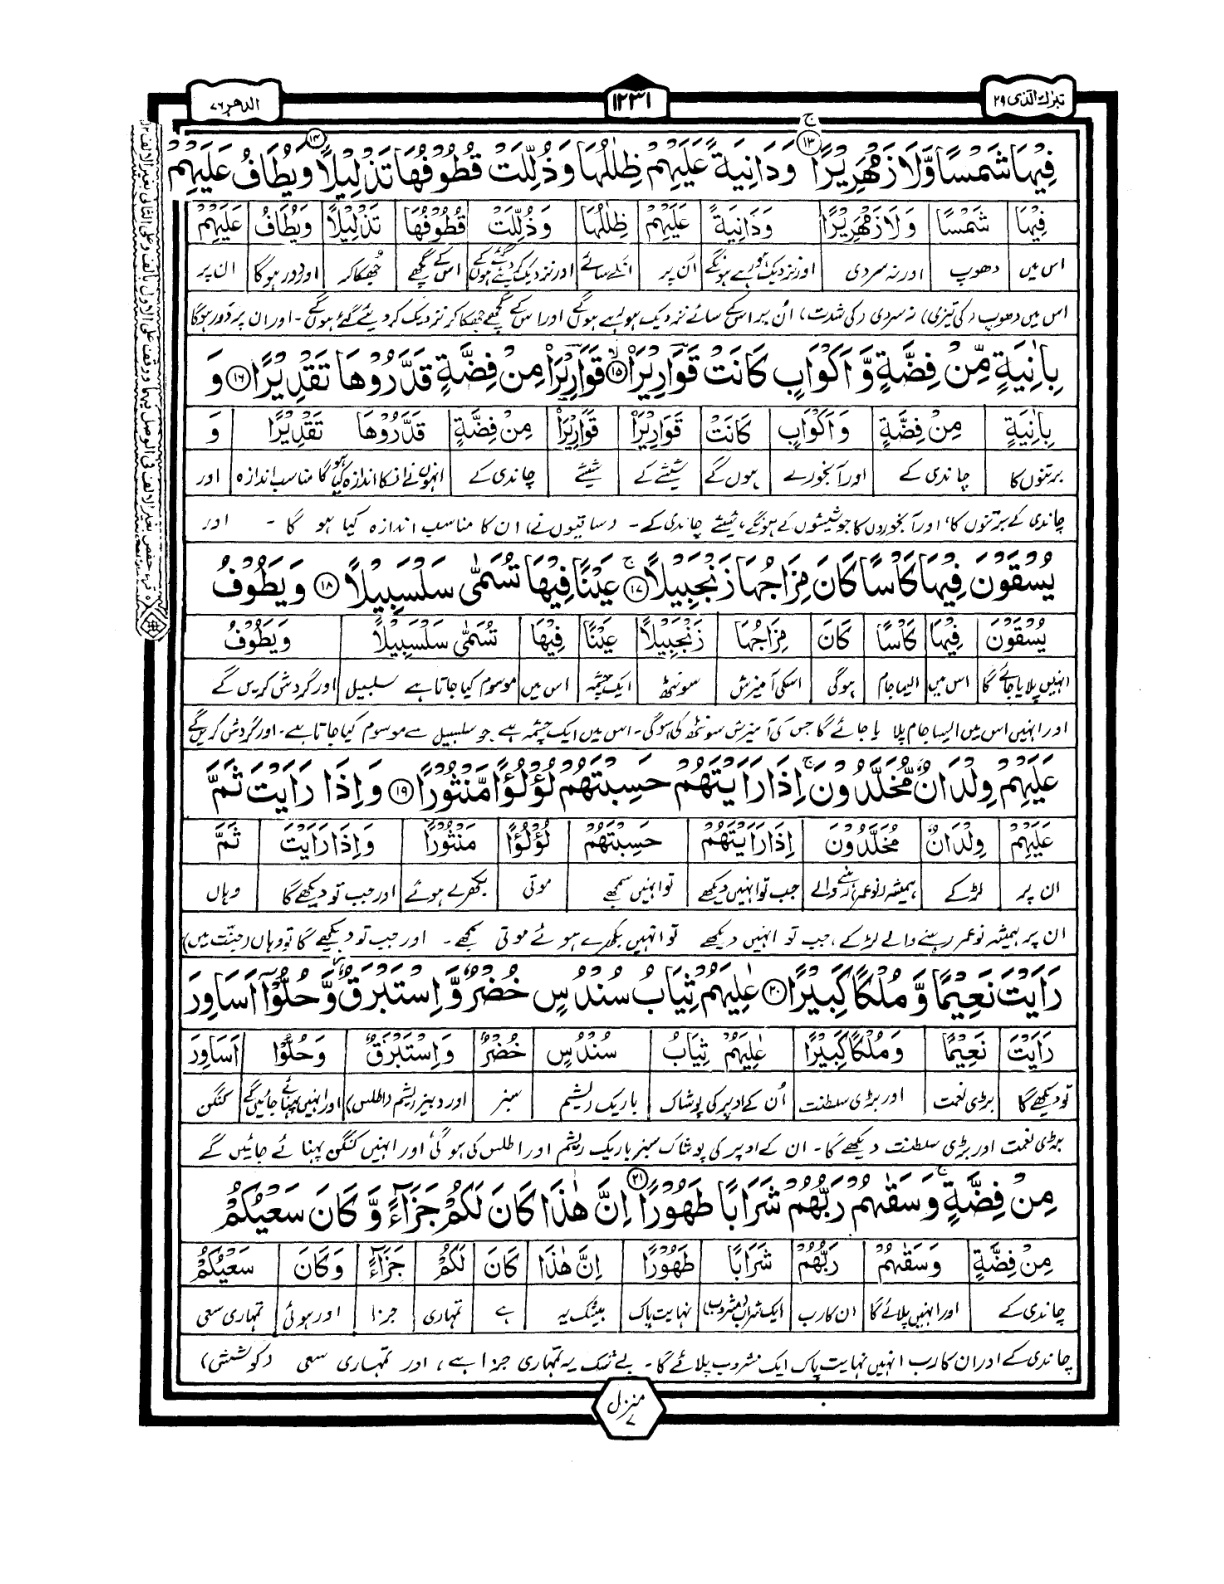 تبرك الذى ٢٩
١٢٣١
الدهر ٧٦
فِيْهَا شَمْسًا وَّلَا زَمْهَرِيْرًا ۱۳ وَدَانِيَةً عَلَيْهِمْ ظِلٰلُهَا وَذُلِّلَتْ قُطُوْفُهَا تَذْلِيْلًا ۱۴ وَيُطَافُ عَلَيْهِمْ
فِيْهَا شَمْسًا وَلَا زَمْهَرِيْرًا وَدَانِيَةً عَلَيْهِمْ ظِلٰلُهَا وَذُلِّلَتْ قُطُوْفُهَا تَذْلِيْلًا وَيُطَافُ عَلَيْهِمْ
اس میں دھوپ اور نہ سردی اور نزدیک ہو رہے ہونگے اُن پر انکے سائے اور نزدیک کر دیئے گئے ہوں گے اس کے گچھے جھکا کر اور دور ہوگا ان پر
اس میں دھوپ (کی تیزی) نہ سردی (کی شدت)، اُن پر اس کے سائے نزدیک ہو رہے ہوں گے اور اس کے گچھے جھکا کر نزدیک کر دیئے گئے ہوں گے۔ اور ان پر دور ہوگا
بِاٰنِيَةٍ مِّنْ فِضَّةٍ وَّاَكْوَابٍ كَانَتْ قَوَارِيْرَا۠ ۱۵ قَوَارِيْرَا۠ مِنْ فِضَّةٍ قَدَّرُوْهَا تَقْدِيْرًا ۱۶ وَ
بِاٰنِيَةٍ مِنْ فِضَّةٍ وَاَكْوَابٍ كَانَتْ قَوَارِيْرَا۠ قَوَارِيْرَا۠ مِنْ فِضَّةٍ قَدَّرُوْهَا تَقْدِيْرًا وَ
برتنوں کا چاندی کے اور آبخورے ہوں گے شیشے کے شیشے چاندی کے انہوں نے انکا اندازہ کیا ہو گا مناسب اندازہ اور
چاندی کے برتنوں کا، اور آبخوروں کا جو شیشوں کے ہونگے، شیشے چاندی کے۔ (ساقیوں نے) ان کا مناسب اندازہ کیا ہو گا - اور
يُسْقَوْنَ فِيْهَا كَاْسًا كَانَ مِزَاجُهَا زَنْجَبِيْلًا ۱۷ عَيْنًا فِيْهَا تُسَمّٰى سَلْسَبِيْلًا ۱۸ وَيَطُوْفُ
يُسْقَوْنَ فِيْهَا كَاْسًا كَانَ مِزَاجُهَا زَنْجَبِيْلًا عَيْنًا فِيْهَا تُسَمّٰى سَلْسَبِيْلًا وَيَطُوْفُ
انہیں پلایا جائے گا اس میں ایسا جام ہوگی اسکی آمیزش سونٹھ ایک چشمہ اس میں موسوم کیا جاتا ہے سلسبیل اور گردش کریں گے
اور انہیں اس میں ایسا جام پلا یا جائے گا جس کی آمیزش سونٹھ کی ہوگی۔ اس میں ایک چشمہ ہے جو سلسبیل سے موسوم کیا جاتا ہے۔ اور گردش کریں گے
عَلَيْهِمْ وِلْدَانٌ مُّخَلَّدُوْنَ اِذَا رَاَيْتَهُمْ حَسِبْتَهُمْ لُؤْلُؤًا مَّنْثُوْرًا ۱۹ وَاِذَا رَاَيْتَ ثَمَّ
عَلَيْهِمْ وِلْدَانٌ مُخَلَّدُوْنَ اِذَا رَاَيْتَهُمْ حَسِبْتَهُمْ لُؤْلُؤًا مَنْثُوْرًا وَاِذَا رَاَيْتَ ثَمَّ
ان پر لڑکے ہمیشہ (نوعمر) رہنے والے جب تو انہیں دیکھے تو انہیں سمجھے موتی بکھرے ہوئے اور جب تو دیکھے گا وہاں
ان پر ہمیشہ نوعمر رہنے والے لڑکے، جب تو انہیں دیکھے تو انہیں بکھرے ہوئے موتی سمجھے ۔ اور جب تو دیکھے گا تو وہاں (جنت میں)
رَاَيْتَ نَعِيْمًا وَّ مُلْكًا كَبِيْرًا ۲۰ عٰلِيَهُمْ ثِيَابُ سُنْدُسٍ خُضْرٌ وَّاِسْتَبْرَقٌ وَّحُلُّوْٓا اَسَاوِرَ
رَاَيْتَ نَعِيْمًا وَمُلْكًا كَبِيْرًا عٰلِيَهُمْ ثِيَابُ سُنْدُسٍ خُضْرٌ وَاِسْتَبْرَقٌ وَحُلُّوْٓا اَسَاوِرَ
تو دیکھے گا بڑی نعمت اور بڑی سلطنت اُن کے اوپر کی پوشاک باریک ریشم سبز اور دبیز ریشم (اطلس) اور انہیں پہنائے جائیں گے کنگن
بڑی نعمت اور بڑی سلطنت دیکھے گا۔ ان کے اوپر کی پوشاک سبز باریک ریشم اور اطلس کی ہو گی اور انہیں کنگن پہنا ئے جائیں گے
مِنْ فِضَّةٍ وَسَقٰىهُمْ رَبُّهُمْ شَرَابًا طَهُوْرًا ۲۱ اِنَّ هٰذَا كَانَ لَكُمْ جَزَآءً وَّكَانَ سَعْيُكُمْ
مِنْ فِضَّةٍ وَسَقٰىهُمْ رَبُّهُمْ شَرَابًا طَهُوْرًا اِنَّ هٰذَا كَانَ لَكُمْ جَزَآءً وَكَانَ سَعْيُكُمْ
چاندی کے اور انہیں پلائے گا ان کا رب ایک شراب (مشروب) نہایت پاک بیشک یہ ہے تمہاری جزا اور ہوئی تمہاری سعی
چاندی کے اور ان کا رب انہیں نہایت پاک ایک مشروب پلائے گا۔ بے شک یہ تمہاری جزا ہے، اور تمہاری سعی (کوشش)
منزل ۷